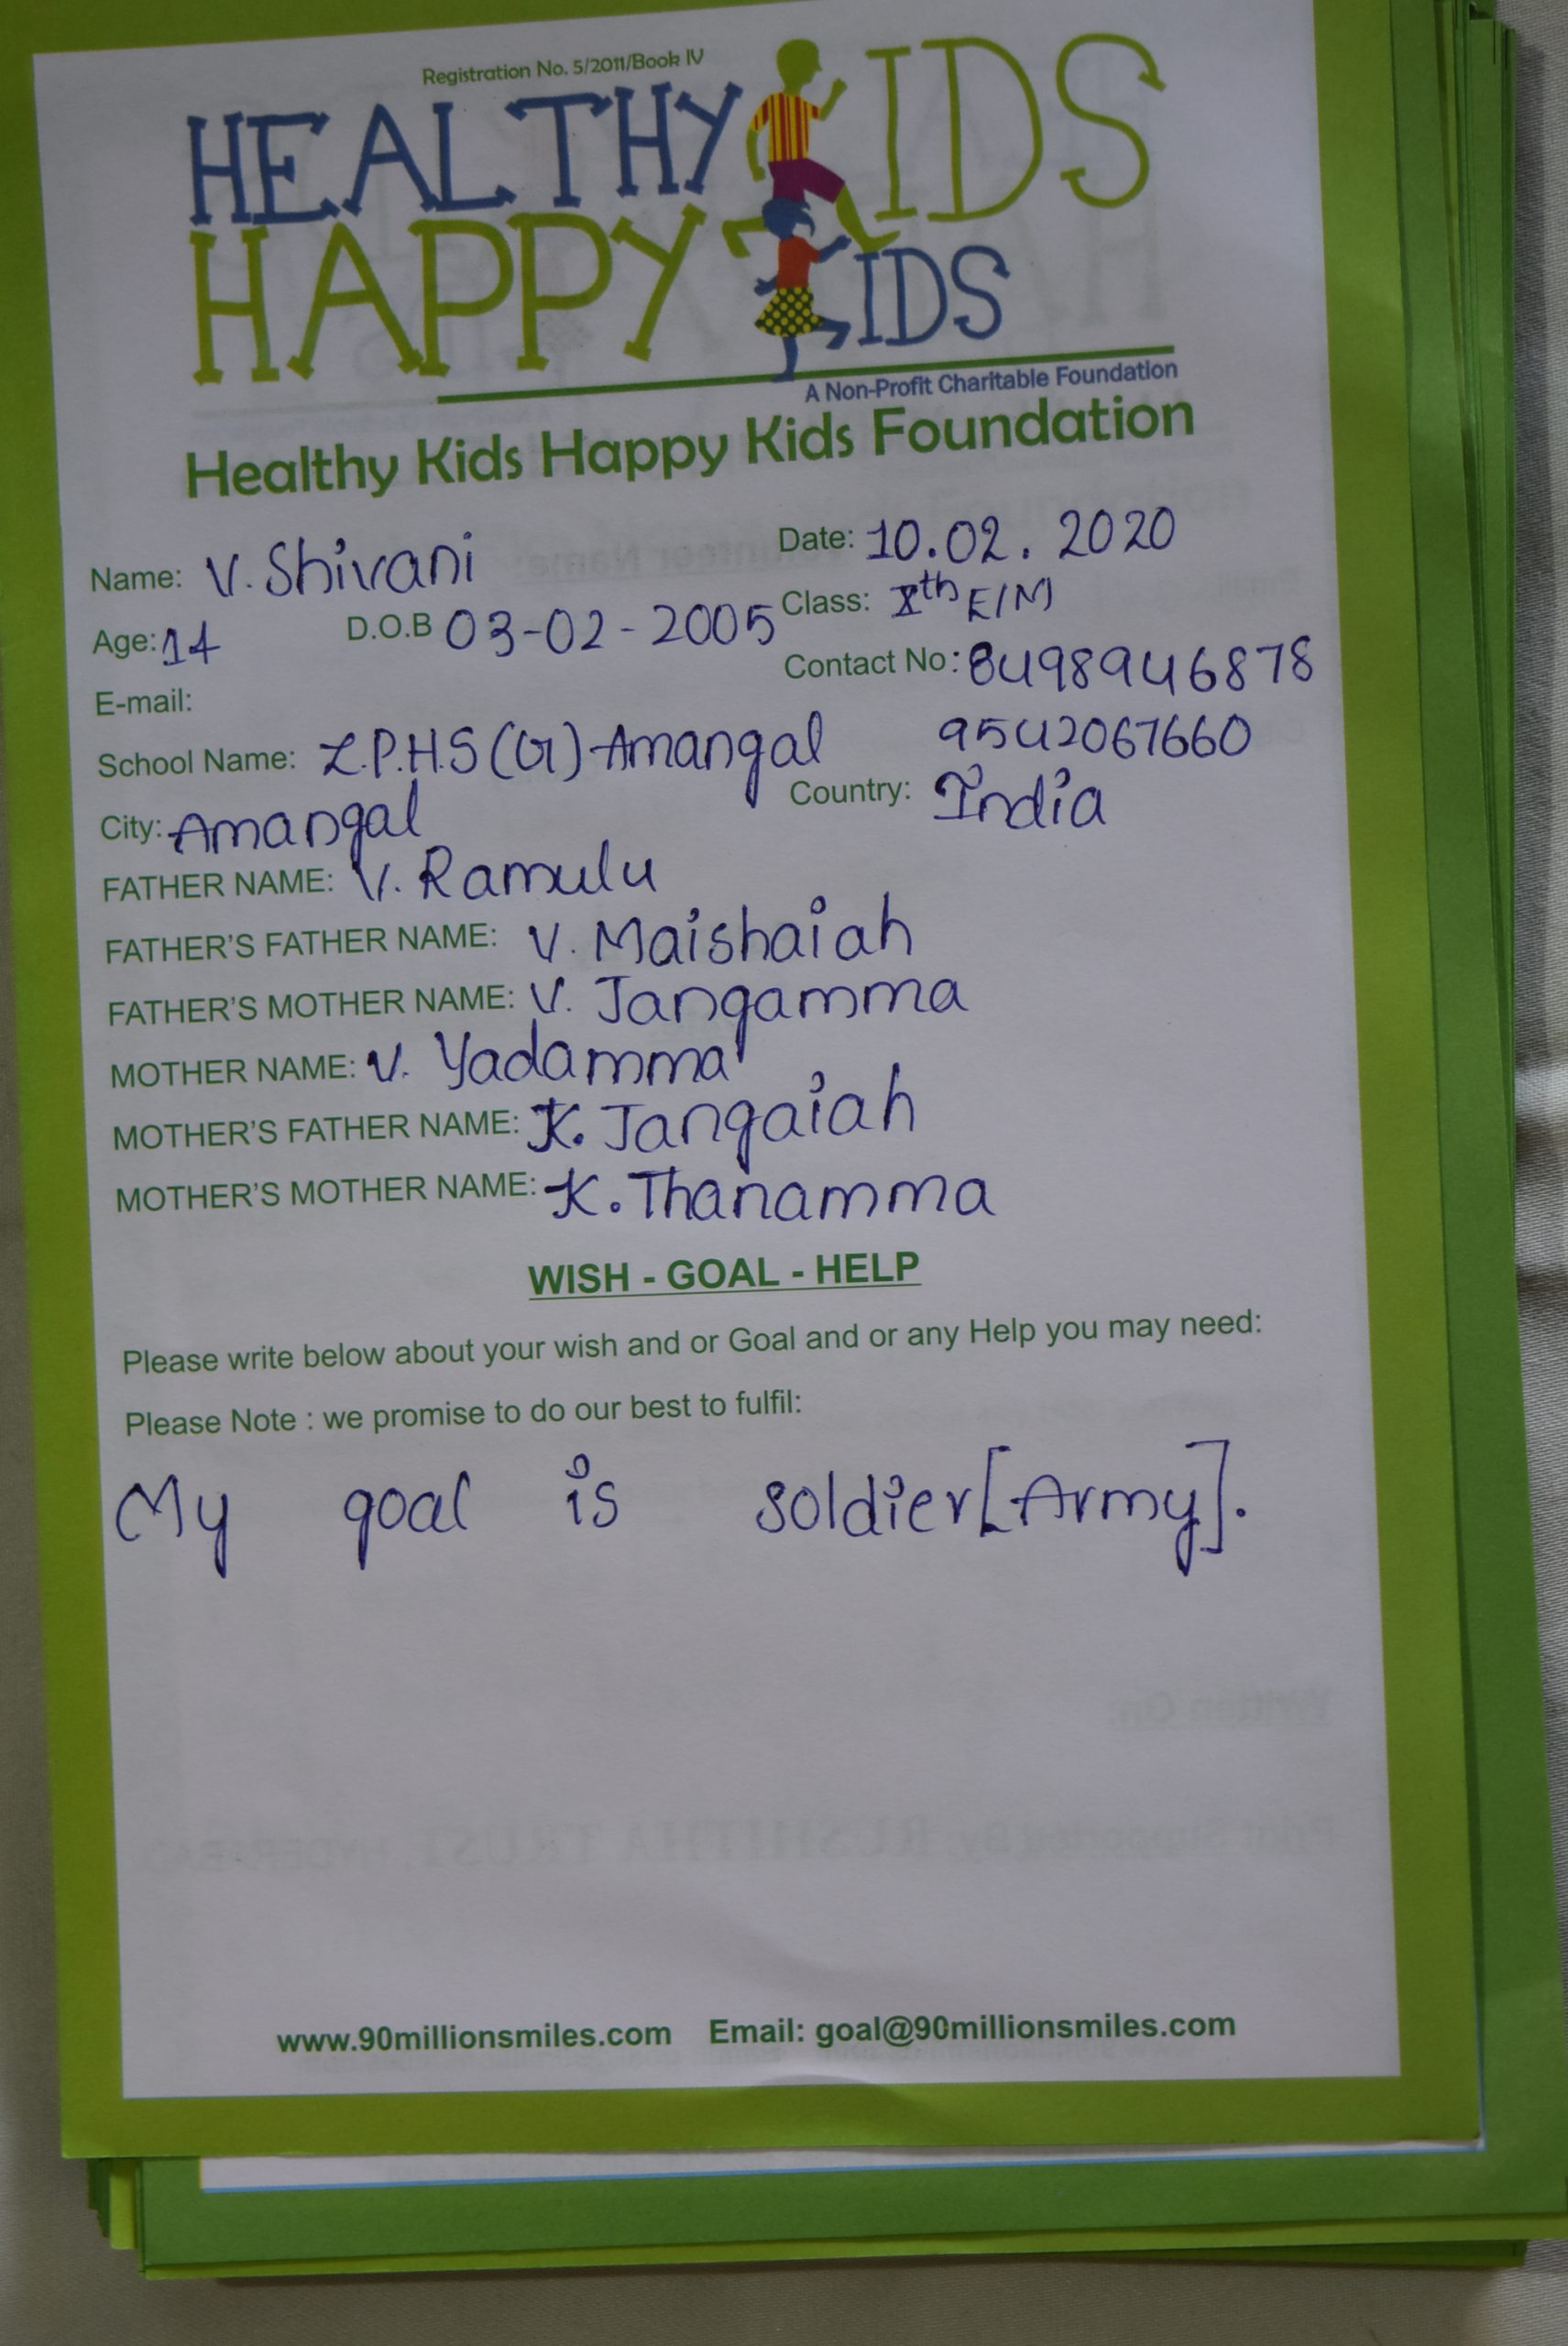 Registration No. 5/2011/Book IV
HEALTHY KIDS
HAPPY KIDS
A Non-Profit Charitable Foundation
Healthy Kids Happy Kids Foundation
Name: V. Shivani Date: 10.02.2020
Age: 14 D.O.B 03-02-2005 Class: Xth E/M
E-mail: Contact No: 8498946878
9542067660
School Name: Z.P.H.S (G) Amangal
City: Amangal Country: India
FATHER NAME: V. Ramulu
FATHER'S FATHER NAME: V. Maishaiah
FATHER'S MOTHER NAME: V. Jangamma
MOTHER NAME: V. Yadamma
MOTHER'S FATHER NAME: K. Jangaiah
MOTHER'S MOTHER NAME: K. Thanamma
WISH - GOAL - HELP
Please write below about your wish and or Goal and or any Help you may need:
Please Note : we promise to do our best to fulfil:
My goal is soldier [Army].
www.90millionsmiles.com Email: goal@90millionsmiles.com